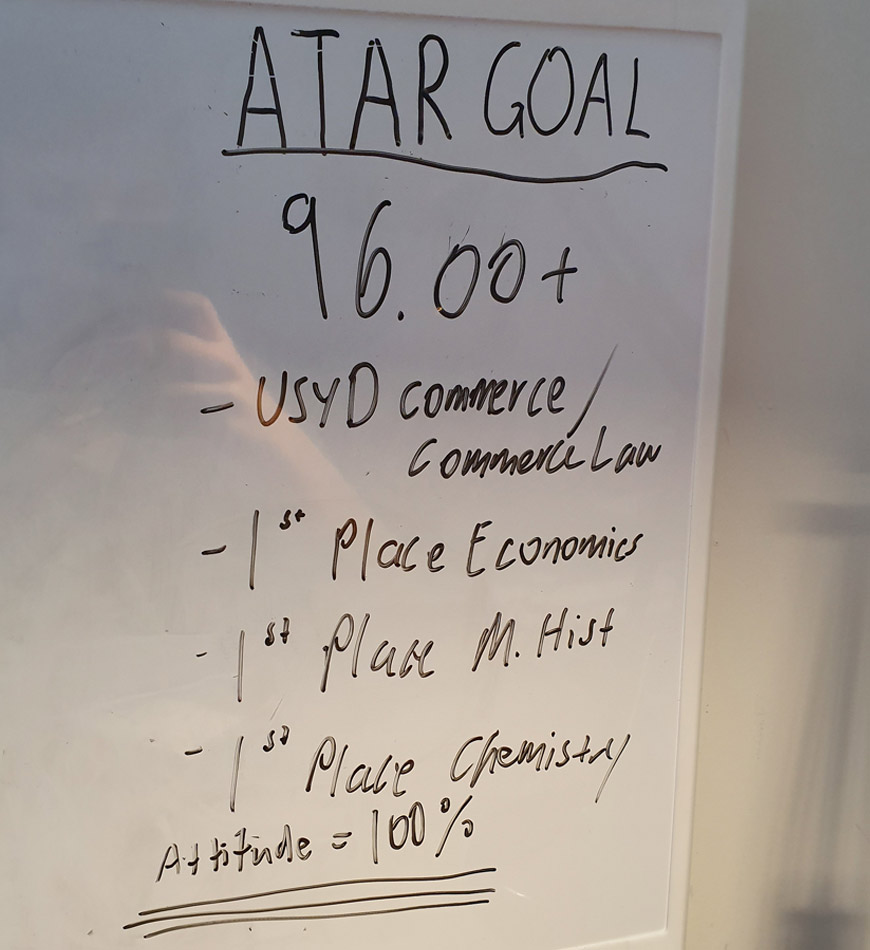 ATAR GOAL
96.00+
- USYD commerce/
Commerce Law
- 1st Place Economics
- 1st Place M. Hist
- 1st Place Chemistry
Attitude = 100%